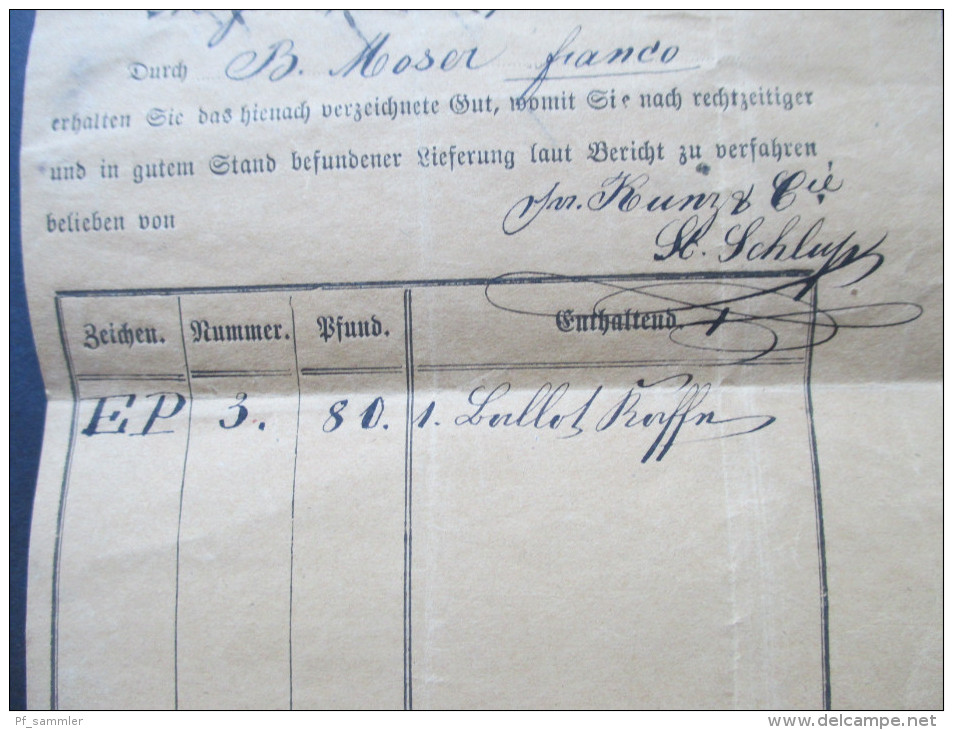 Durch B. Moser franco
erhalten Sie das hienach verzeichnete Gut, womit Sie nach rechtzeitiger
und in gutem Stand befundener Lieferung laut Bericht zu verfahren
belieben von
Kunz & Cie
Schlup
Zeichen. Nummer. Pfund. Enthaltend.
EP 3. 80. 1. Ballot Kaffe
Pf_sammler
www.delcampe.net